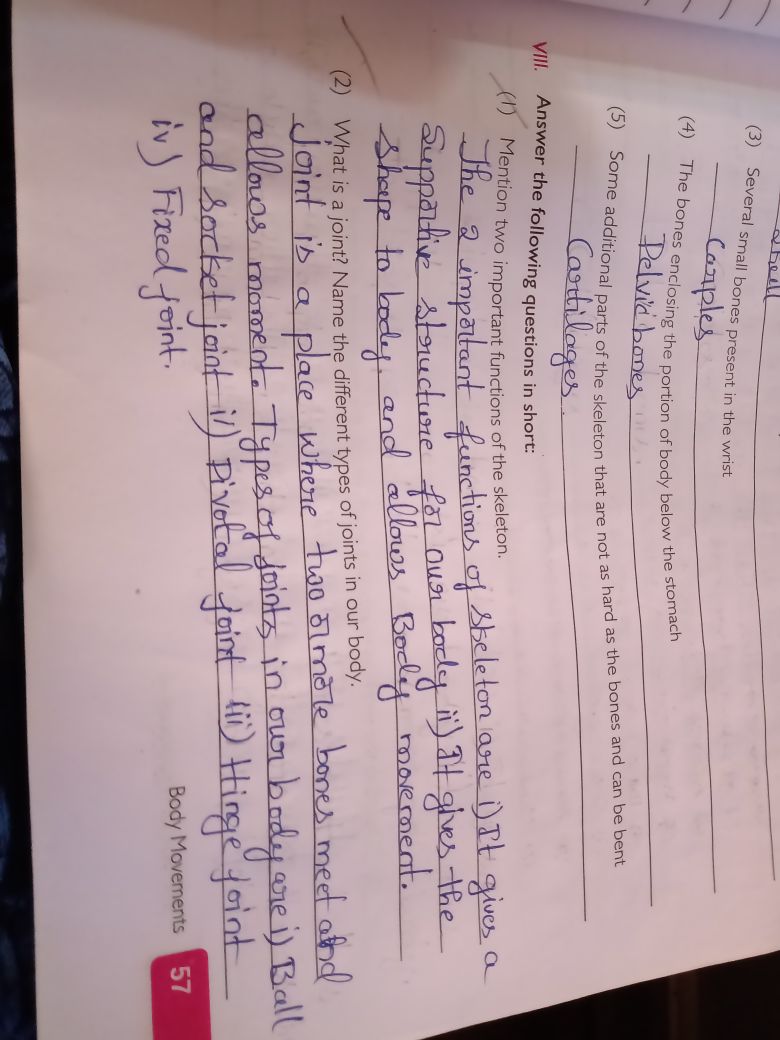 (3) Several small bones present in the wrist
Carples
(4) The bones enclosing the portion of body below the stomach
Pelvic bones
(5) Some additional parts of the skeleton that are not as hard as the bones and can be bent
Cartilages.
VIII. Answer the following questions in short:
(1) Mention two important functions of the skeleton.
The 2 important functions of skeleton are i) It gives a
Supportive structure for our body ii) It gives the
shape to body, and allows Body movement.
(2) What is a joint? Name the different types of joints in our body.
Joint is a place where two or more bones meet and
allows moment. Types of joints in our body are i) Ball
and socket joint ii) Pivotal joint iii) Hinge joint
iv) Fixed joint.
Body Movements 57